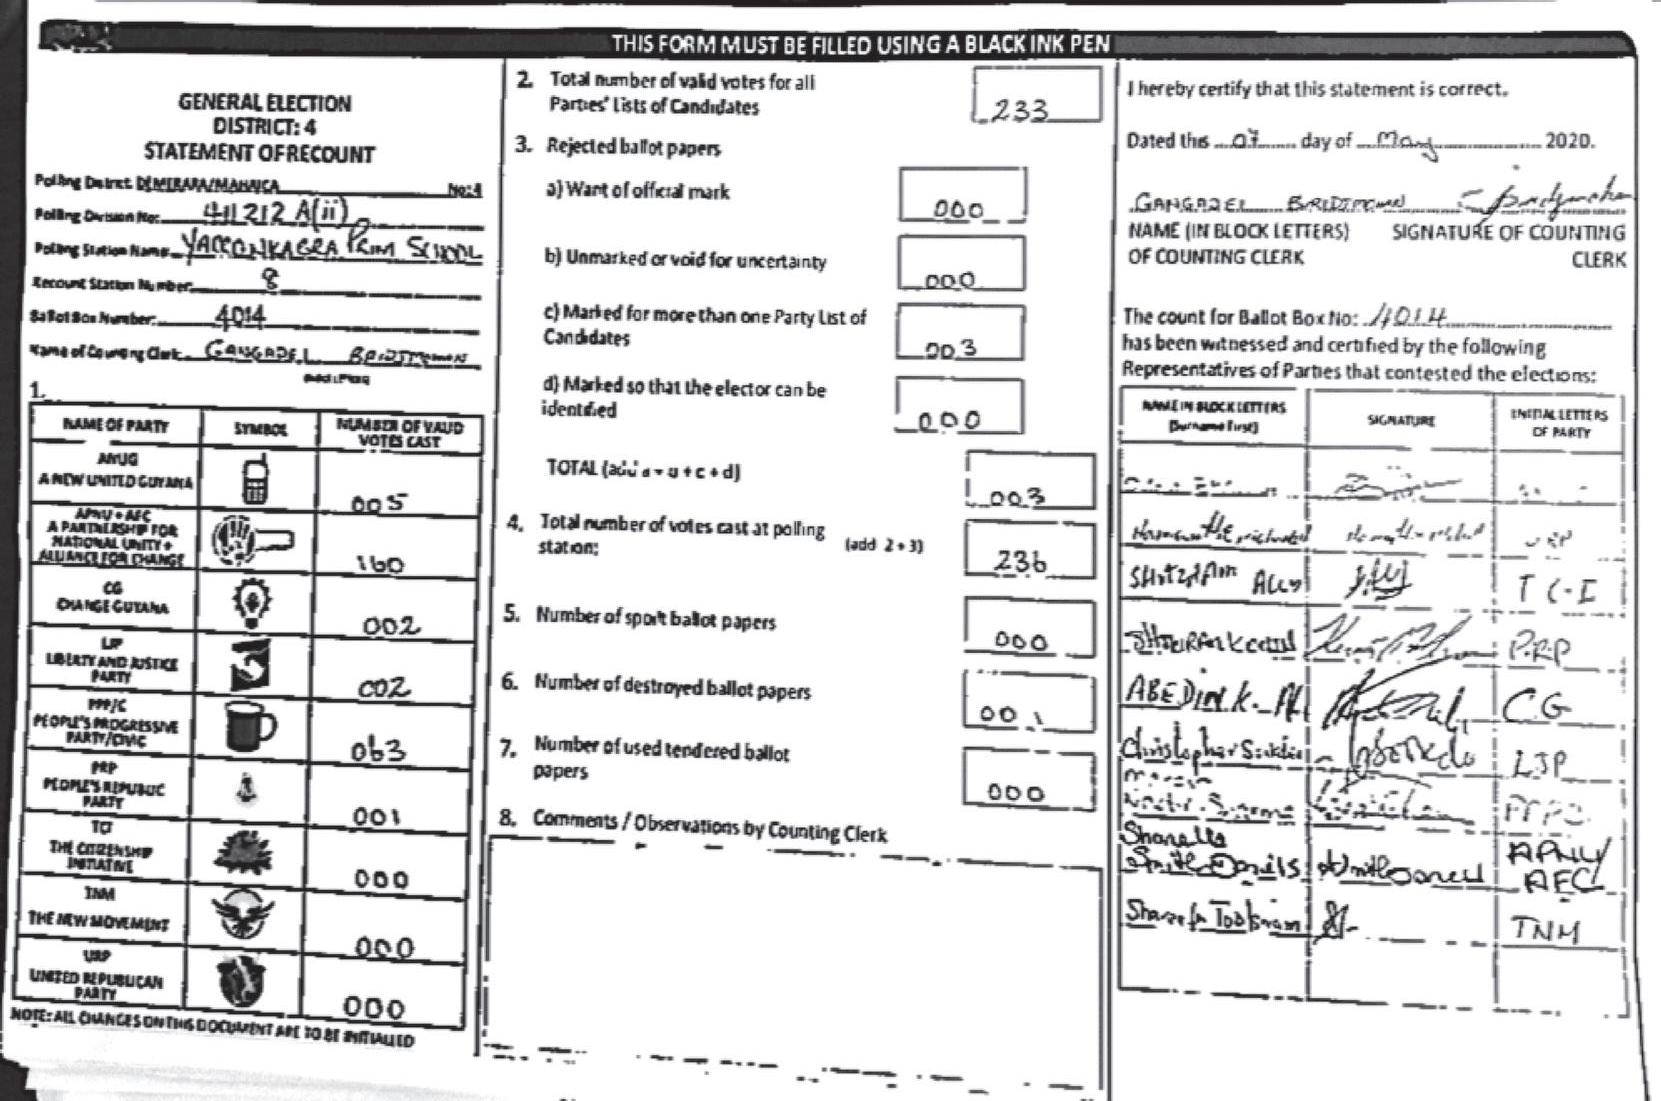 THIS FORM MUST BE FILLED USING A BLACK INK PEN
GENERAL ELECTION
DISTRICT: 4
STATEMENT OF RECOUNT
Polling District: DEMERARA/MAHAICA No: 4
Polling Division No: 411212 A(ii)
Polling Station Name: PRIM SCHOOL
Recount Station Number: 8
Ballot Box Number: 4014
Name of Counting Clerk:
1.
NAME OF PARTY SYMBOL NUMBER OF VALID VOTES CAST
ANUG
A NEW UNITED GUYANA 005
APNU + AFC
A PARTNERSHIP FOR
NATIONAL UNITY +
ALLIANCE FOR CHANGE 160
CG
CHANGE GUYANA 002
LJP
LIBERTY AND JUSTICE
PARTY 002
PPP/C
PEOPLE'S PROGRESSIVE
PARTY/CIVIC 063
PRP
PEOPLE'S REPUBLIC
PARTY 001
TCI
THE CITIZENSHIP
INITIATIVE 000
TNM
THE NEW MOVEMENT 000
URP
UNITED REPUBLICAN
PARTY 000
NOTE: ALL CHANGES ON THIS DOCUMENT ARE TO BE INITIALLED
2. Total number of valid votes for all
Parties' Lists of Candidates 233
3. Rejected ballot papers
a) Want of official mark 000
b) Unmarked or void for uncertainty 000
c) Marked for more than one Party List of
Candidates 003
d) Marked so that the elector can be
identified 000
TOTAL (add a + b + c + d) 003
4. Total number of votes cast at polling
station: (add 2 + 3) 236
5. Number of spoilt ballot papers 000
6. Number of destroyed ballot papers 001
7. Number of used tendered ballot
papers 000
8. Comments / Observations by Counting Clerk
I hereby certify that this statement is correct.
Dated this 07 day of May 2020.
NAME (IN BLOCK LETTERS) SIGNATURE OF COUNTING
OF COUNTING CLERK CLERK
The count for Ballot Box No: 4014
has been witnessed and certified by the following
Representatives of Parties that contested the elections:
NAME IN BLOCK LETTERS
(Surname First) SIGNATURE INITIAL LETTERS
OF PARTY
URP
ALLY TCI
P.R.P
ABEDIN K. CG
Christopher LJP
PPPC
Shanella
Smith Daniels APNU/
AFC
TNM